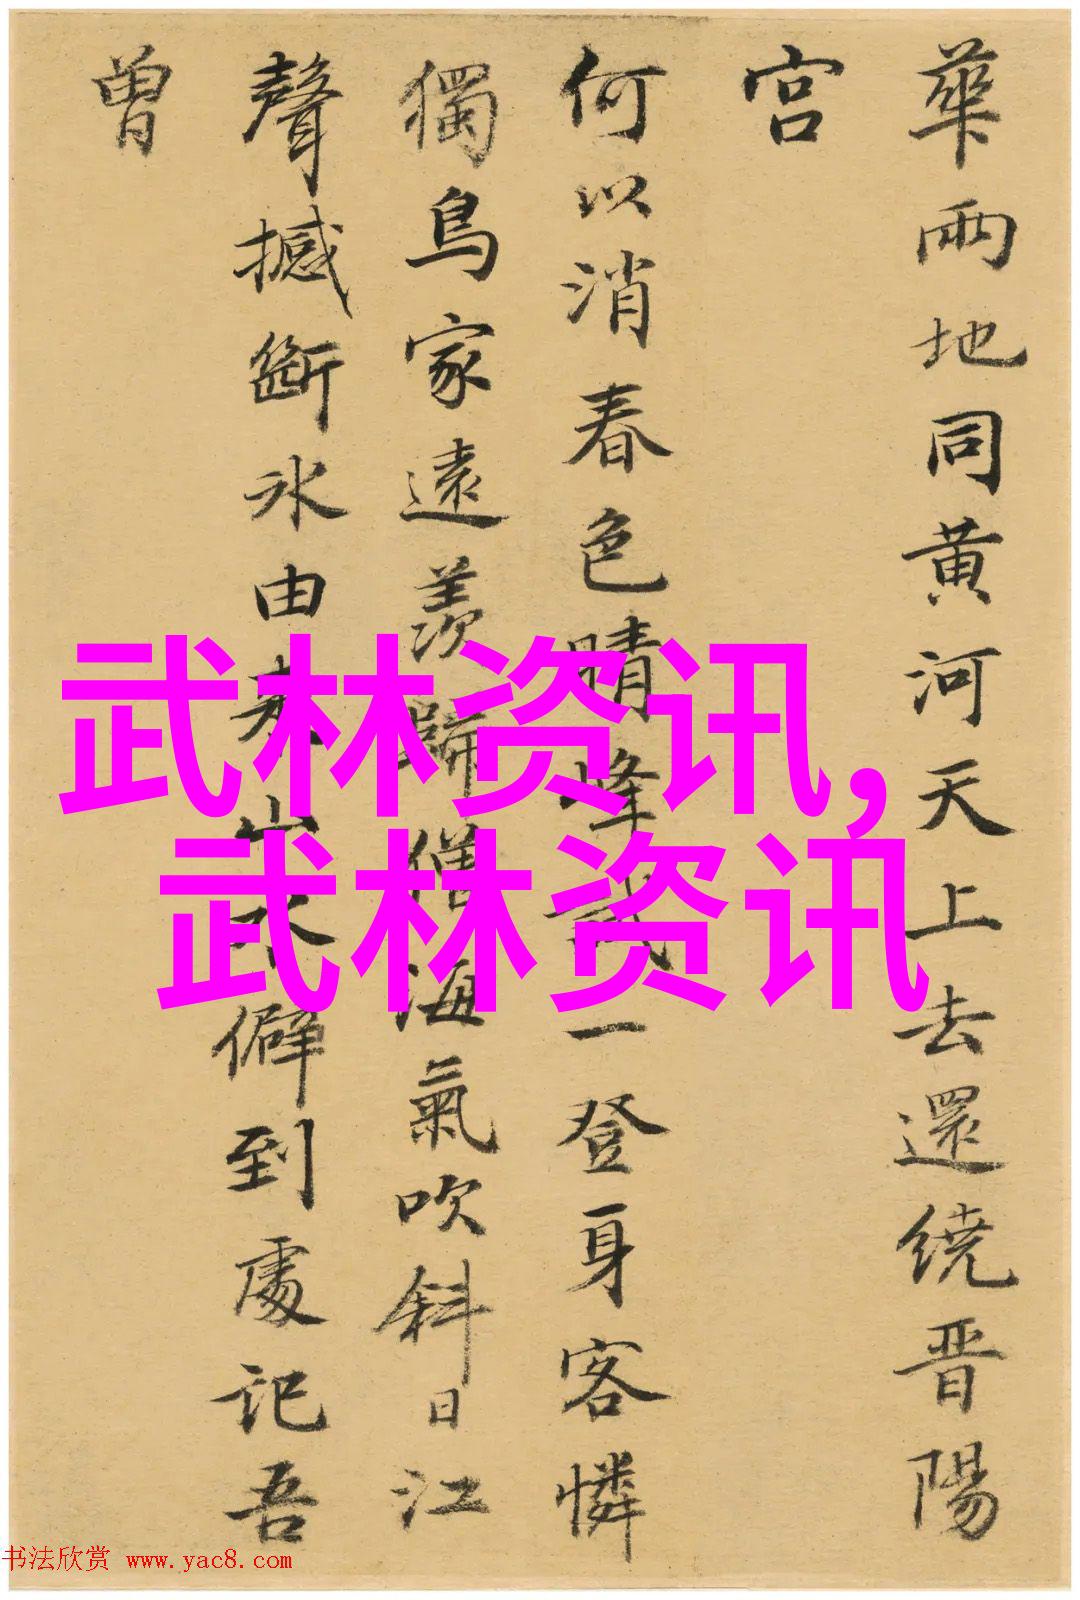 華兩地同黄河天上去還繞晋陽
宫
何以消春色晴峰試一登身客憐
獨鳥家遠羨歸僧海氣吹斜日江
聲撼斷冰由來山水僻到處記吾
曾
武林资讯,
武林资讯
书法欣赏 www.yac8.com